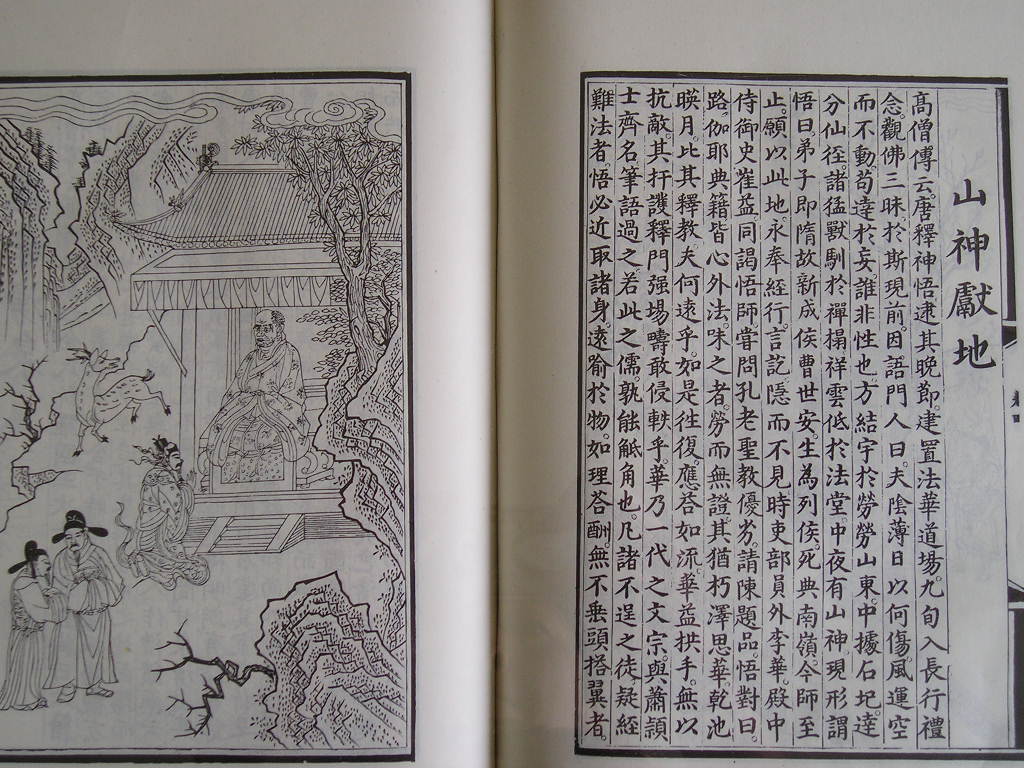 山神獻地
高僧傳云。唐釋神悟逮其晚節。建置法華道場。九旬入長行禮
念。觀佛三昧。於斯現前。因語門人曰。夫陰薄日以何傷。風運空
而不動。苟達於妄誰非性也。方結宇於勞勞山東中據石圯達
分仙徑。諸猛獸馴於禪榻祥雲低於法堂。中夜有山神現形謂
悟曰。弟子即隋故新成侯曹世安。生為列侯。死典南嶺。今師至
止。願以此地永奉經行。言訖隱而不見。時吏部員外李華。殿中
侍御史崔益。同謁悟師。嘗問孔老聖教優劣。請陳題品。悟對曰。
路伽耶典籍皆心外法。味之者。勞而無證。其猶朽澤思華乾池
映月。比其釋教。夫何遠乎。如是往復。應荅如流。華益拱手。無以
抗敵。其扞護釋門。强場疇敢侵軼乎。華乃一代之文宗。與蕭頴
士齊名。筆語過之。若此之儒。孰能觝角也。凡諸不逞之徒。疑經
難法者。悟必近取諸身。遠喻於物。如理荅酬。無不垂頭搭翼者。
卷四